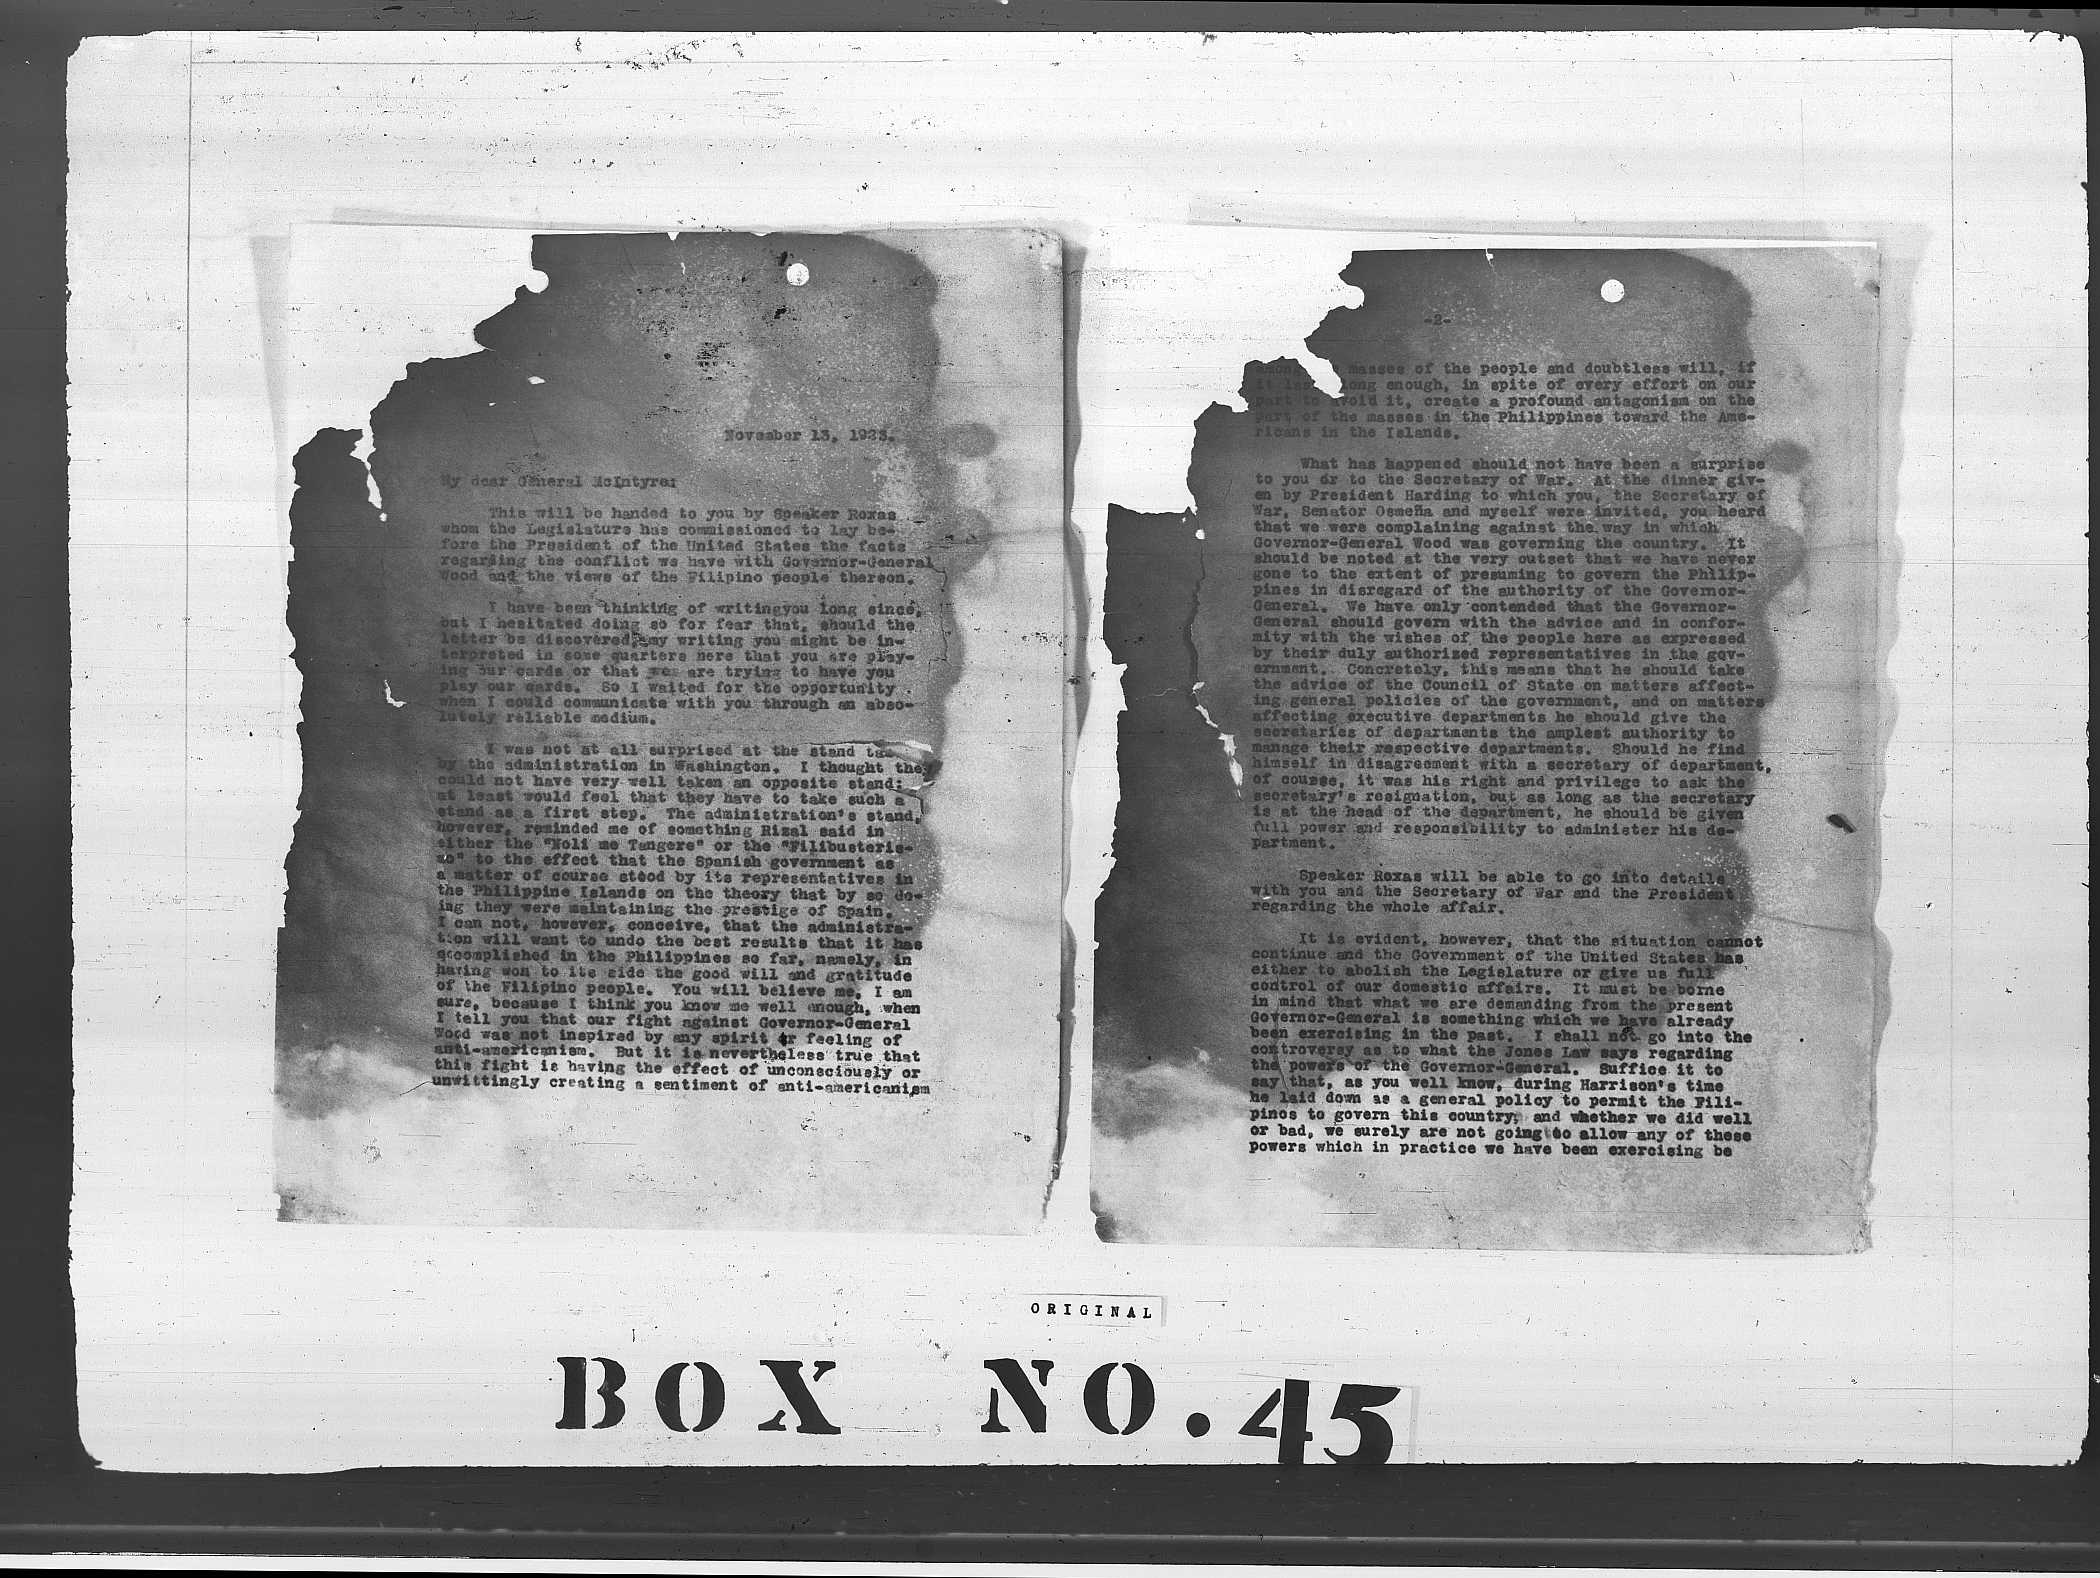 November 13, 1923.
My dear General McIntyre:
This will be handed to you by Speaker Roxas
whom the Legislature has commissioned to lay be-
fore the President of the United States the facts
regarding the conflict we have with Governor-General
Wood and the views of the Filipino people thereon.
I have been thinking of writingyou long since,
but I hesitated doing so for fear that, should the
letter be discovered, my writing you might be in-
terpreted in some quarters here that you are play-
ing our cards or that we are trying to have you
play our cards. So I waited for the opportunity
when I could communicate with you through an abso-
lutely reliable medium.
I was not at all surprised at the stand
by the administration in Washington. I thought they
could not have very well taken an opposite stand;
at least would feel that they have to take such a
stand as a first step. The administration's stand,
however, reminded me of something Rizal said in
either the "Noli me Tangere" or the "Filibusteris-
mo" to the effect that the Spanish government as
a matter of course stood by its representatives in
the Philippine Islands on the theory that by so do-
ing they were maintaining the prestige of Spain.
I can not, however, conceive, that the administra-
tion will want to undo the best results that it has
accomplished in the Philippines so far, namely, in
having won to its side the good will and gratitude
of the Filipino people. You will believe me, I am
sure, because I think you know me well enough, when
I tell you that our fight against Governor-General
Wood was not inspired by any spirit or feeling of
anti-americanism. But it is nevertheless true that
this fight is having the effect of unconsciously or
unwittingly creating a sentiment of anti-americanism
-2-
among masses of the people and doubtless will, if
it long enough, in spite of every effort on our
part to avoid it, create a profound antagonism on the
part of the masses in the Philippines toward the Ame-
ricans in the Islands.
What has happened should not have been a surprise
to you or to the Secretary of War. At the dinner giv-
en by President Harding to which you, the Secretary of
War, Senator Osmeña and myself were invited, you heard
that we were complaining against the way in which
Governor-General Wood was governing the country. It
should be noted at the very outset that we have never
gone to the extent of presuming to govern the Philip-
pines in disregard of the authority of the Governor-
General. We have only contended that the Governor-
General should govern with the advice and in confor-
mity with the wishes of the people here as expressed
by their duly authorized representatives in the gov-
ernment. Concretely, this means that he should take
the advice of the Council of State on matters affect-
ing general policies of the government, and on matters
affecting executive departments he should give the
secretaries of departments the amplest authority to
manage their respective departments. Should he find
himself in disagreement with a secretary of department,
of course, it was his right and privilege to ask the
secretary's resignation, but as long as the secretary
is at the head of the department, he should be given
full power and responsibility to administer his de-
partment.
Speaker Roxas will be able to go into details
with you and the Secretary of War and the President
regarding the whole affair.
It is evident, however, that the situation cannot
continue and the Government of the United States has
either to abolish the Legislature or give us full
control of our domestic affairs. It must be borne
in mind that what we are demanding from the present
Governor-General is something which we have already
been exercising in the past. I shall not go into the
controversy as to what the Jones Law says regarding
the powers of the Governor-General. Suffice it to
say that, as you well know, during Harrison's time
he laid down as a general policy to permit the Fili-
pinos to govern this country, and whether we did well
or bad, we surely are not going to allow any of these
powers which in practice we have been exercising be
ORIGINAL
BOX NO. 45